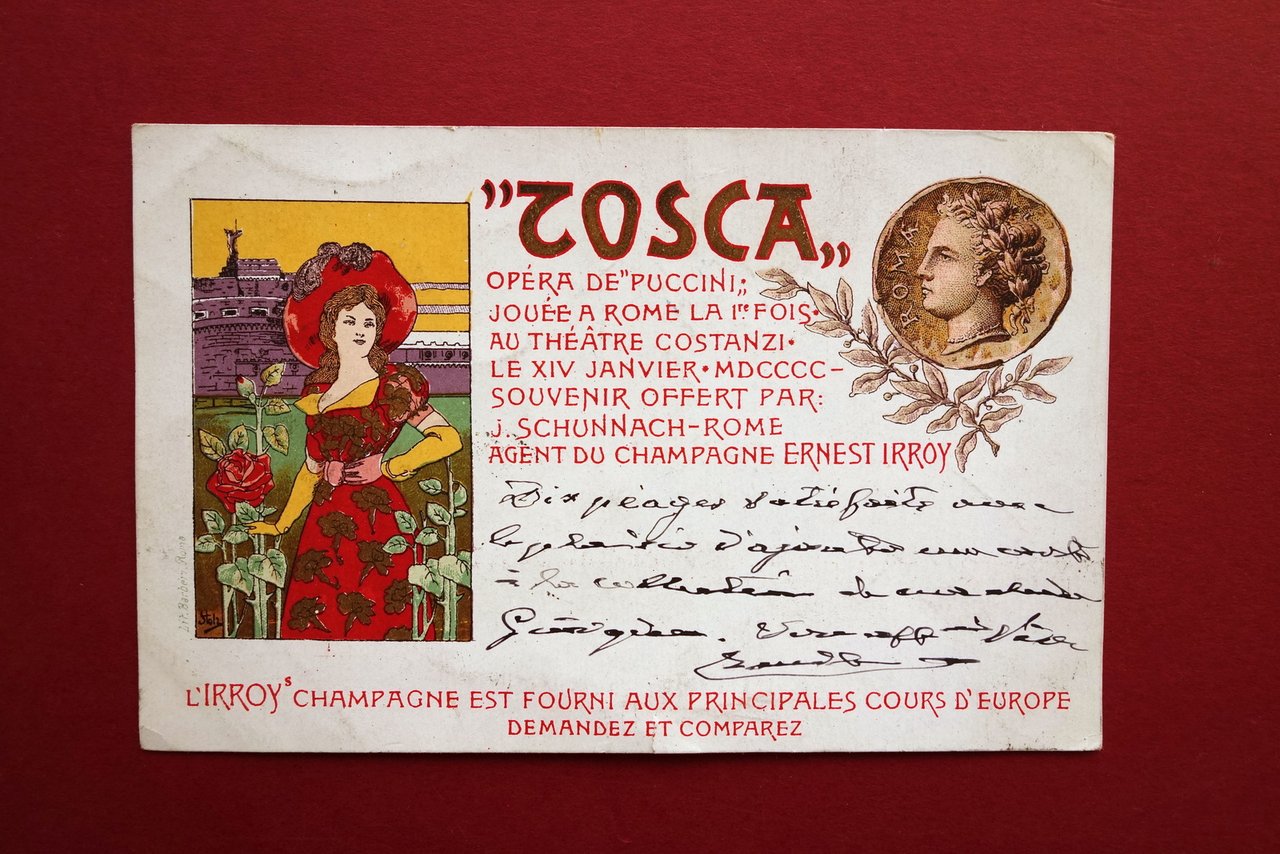 "TOSCA„
OPÉRA DE "PUCCINI„
JOUÉE A ROME LA 1re FOIS•
AU THÉÂTRE COSTANZI•
LE XIV JANVIER•MDCCCC–
SOUVENIR OFFERT PAR:
J. SCHUNNACH–ROME
AGENT DU CHAMPAGNE ERNEST IRROY
ROMA
avec
le plaisir d'ajouter une carte
à la collection de
Stolz
L'IRROYs CHAMPAGNE EST FOURNI AUX PRINCIPALES COURS D'EUROPE
DEMANDEZ ET COMPAREZ